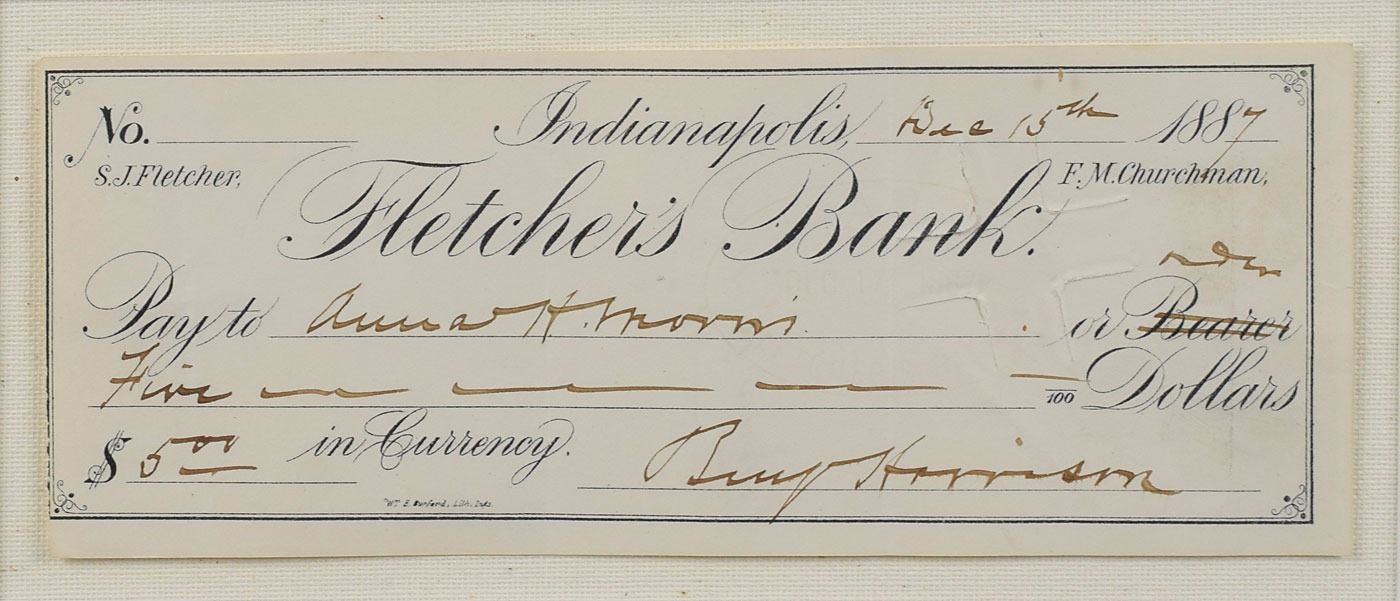 No. Indianapolis, Dec 15th 1887
S.J. Fletcher, F.M. Churchman,
Fletcher's Bank.
order
Pay to Anna H. Morris. or Bearer
Five — — — — /100 Dollars
$ 5.00 in Currency. Benj Harrison
Wm. B. Burford, Lith. Inds.